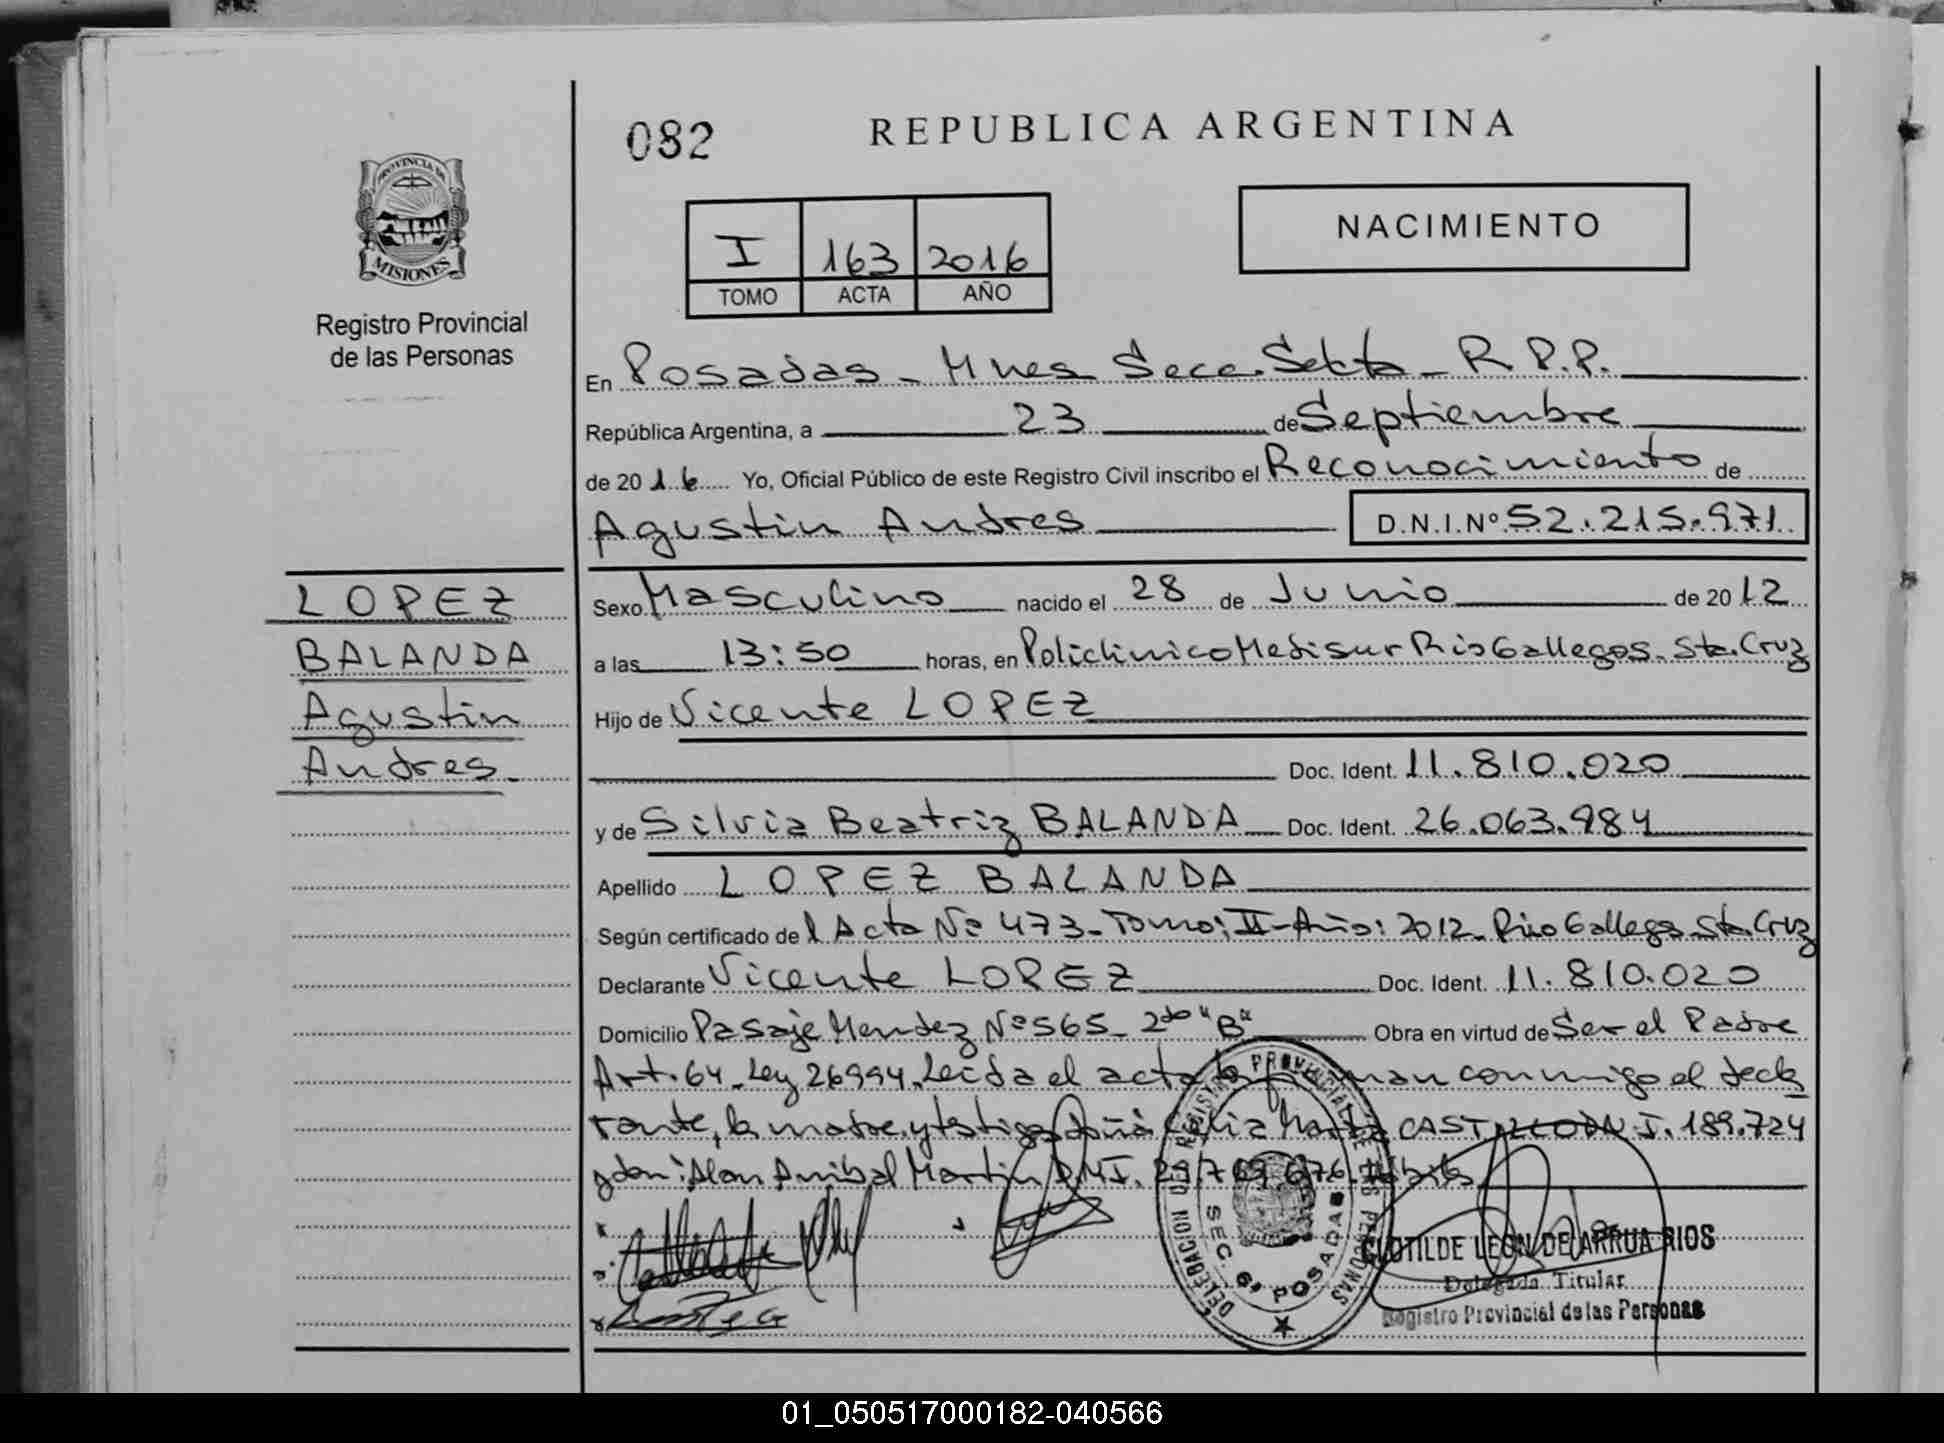 082
REPUBLICA ARGENTINA
PROVINCIA DE
MISIONES
Registro Provincial
de las Personas
NACIMIENTO
I 163 2016
TOMO ACTA AÑO
En Posadas - Mnes Secc. Sexta - R.P.P.
República Argentina, a 23 de Septiembre
de 2016 Yo, Oficial Público de este Registro Civil inscribo el Reconocimiento de
Agustin Andres D.N.I.Nº 52.215.971
LOPEZ
BALANDA
Agustin
Andres.
Sexo Masculino nacido el 28 de Junio de 2012
a las 13:50 horas, en Policlinico Medisur Rio Gallegos. Sta. Cruz
Hijo de Vicente LOPEZ
Doc. Ident. 11.810.020
y de Silvia Beatriz BALANDA Doc. Ident. 26.063.984
Apellido LOPEZ BALANDA
Según certificado del Acta Nº 473 - Tomo: II - Año: 2012 - Rio Gallegos Sta. Cruz
Declarante Vicente LOPEZ Doc. Ident. 11.810.020
Domicilio Pasaje Mendez Nº 565 - 2do "B" Obra en virtud de Ser el Padre
Art. 64 - Ley 26994. Leida el acta la firman conmigo el decla
rante, la madre, y testigos doña Celia Marta CASTILLO DNI. 189.724
y don: Alan Anibal Martin DNI. 29.769.676.
REGISTRO PROVINCIAL DE LAS PERSONAS
DELEGACION
SEC. 6ª POSADAS
CLOTILDE LEON DE ARRUA RIOS
Delegada Titular
Registro Provincial de las Personas
01_050517000182-040566